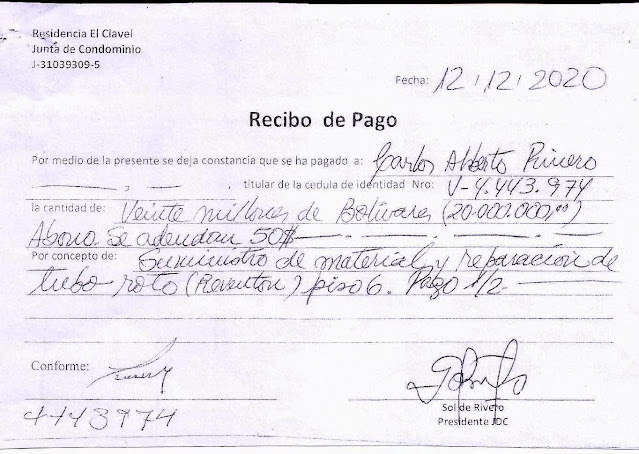 Residencia El Clavel
Junta de Condominio
J-31039309-5
Fecha: 12/12/2020
Recibo de Pago
Por medio de la presente se deja constancia que se ha pagado a: Carlos Alberto Rivero
, titular de la cedula de identidad Nro: V-4.443.974
la cantidad de: Veinte millones de Bolívares (20.000.000,00)
Abono. Se adeudan 50$
Por concepto de: Suministro de material y reparación de
tubo roto (Reventon) piso 6. Pago 1/2
Conforme:
4443974
Sol de Rivero
Presidente JDC